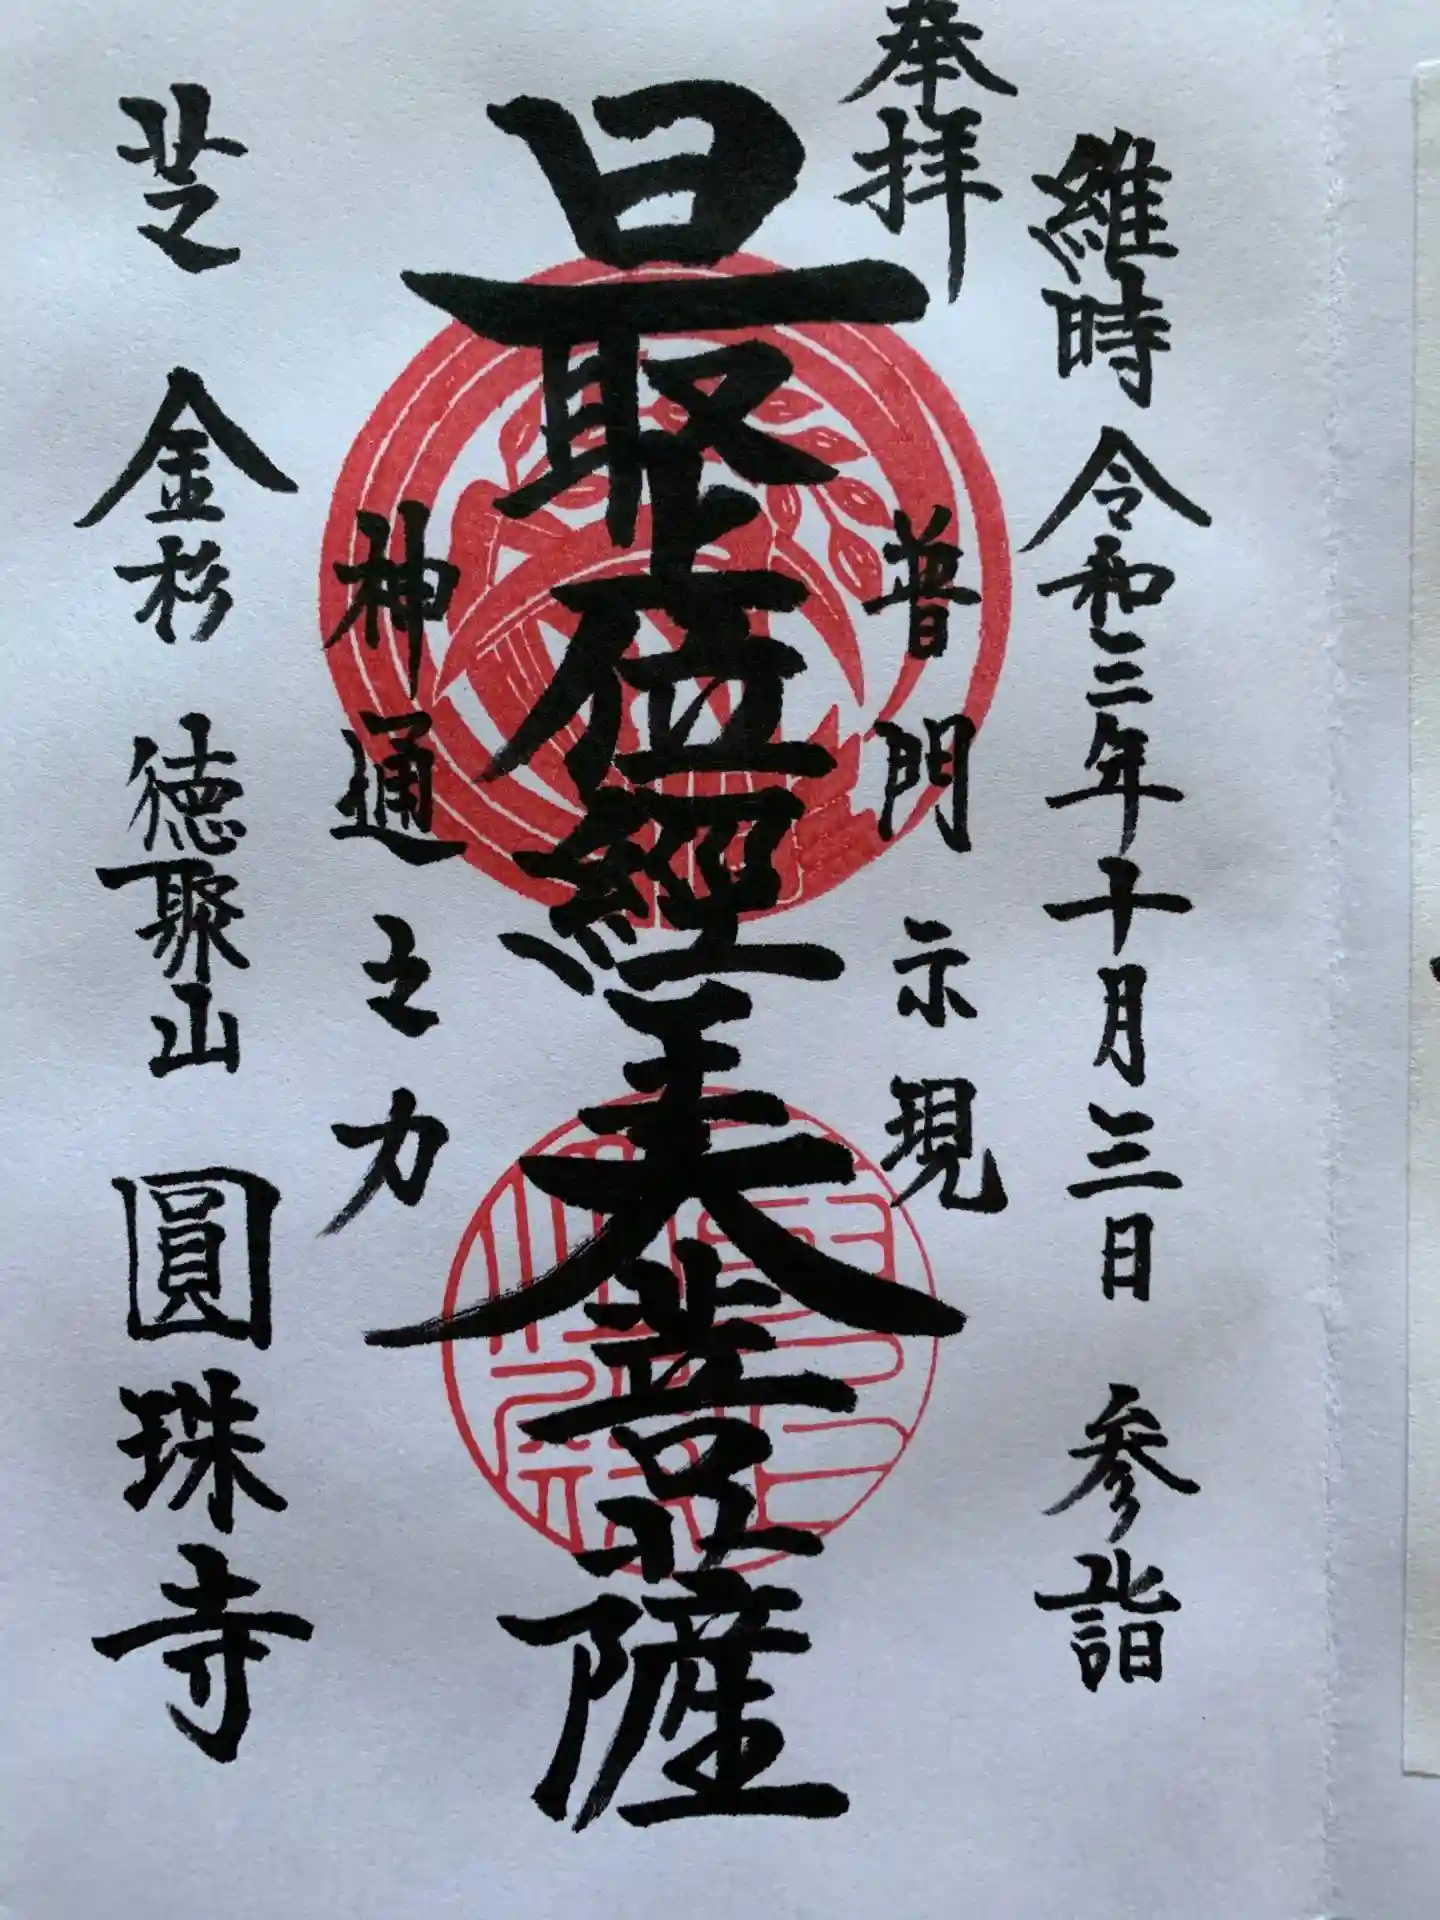 奉拝
維時 令和三年十月三日 参詣
普門示現
最上位經王大菩薩
神通之力
芝 金杉 徳聚山 圓珠寺